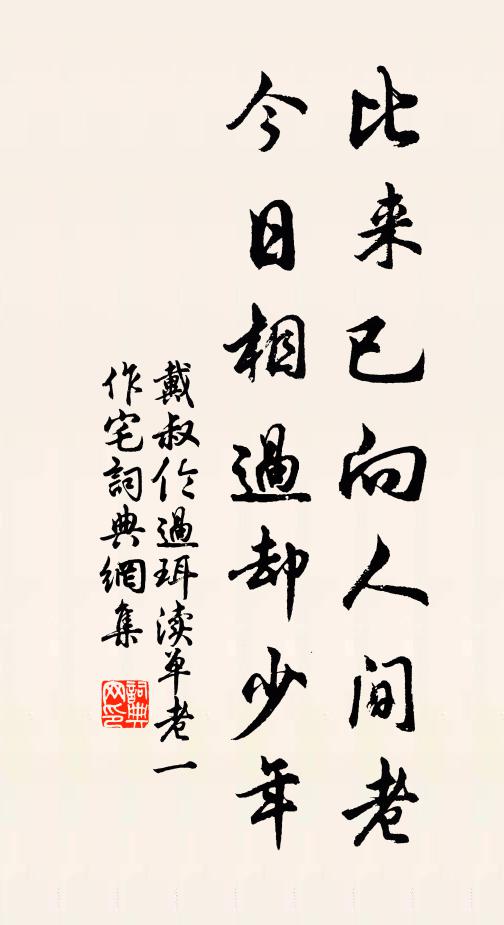 比来已向人间老
今日相過却少年
戴叔伦過珥渎单老一
作宅詞典網集
詞典
网印